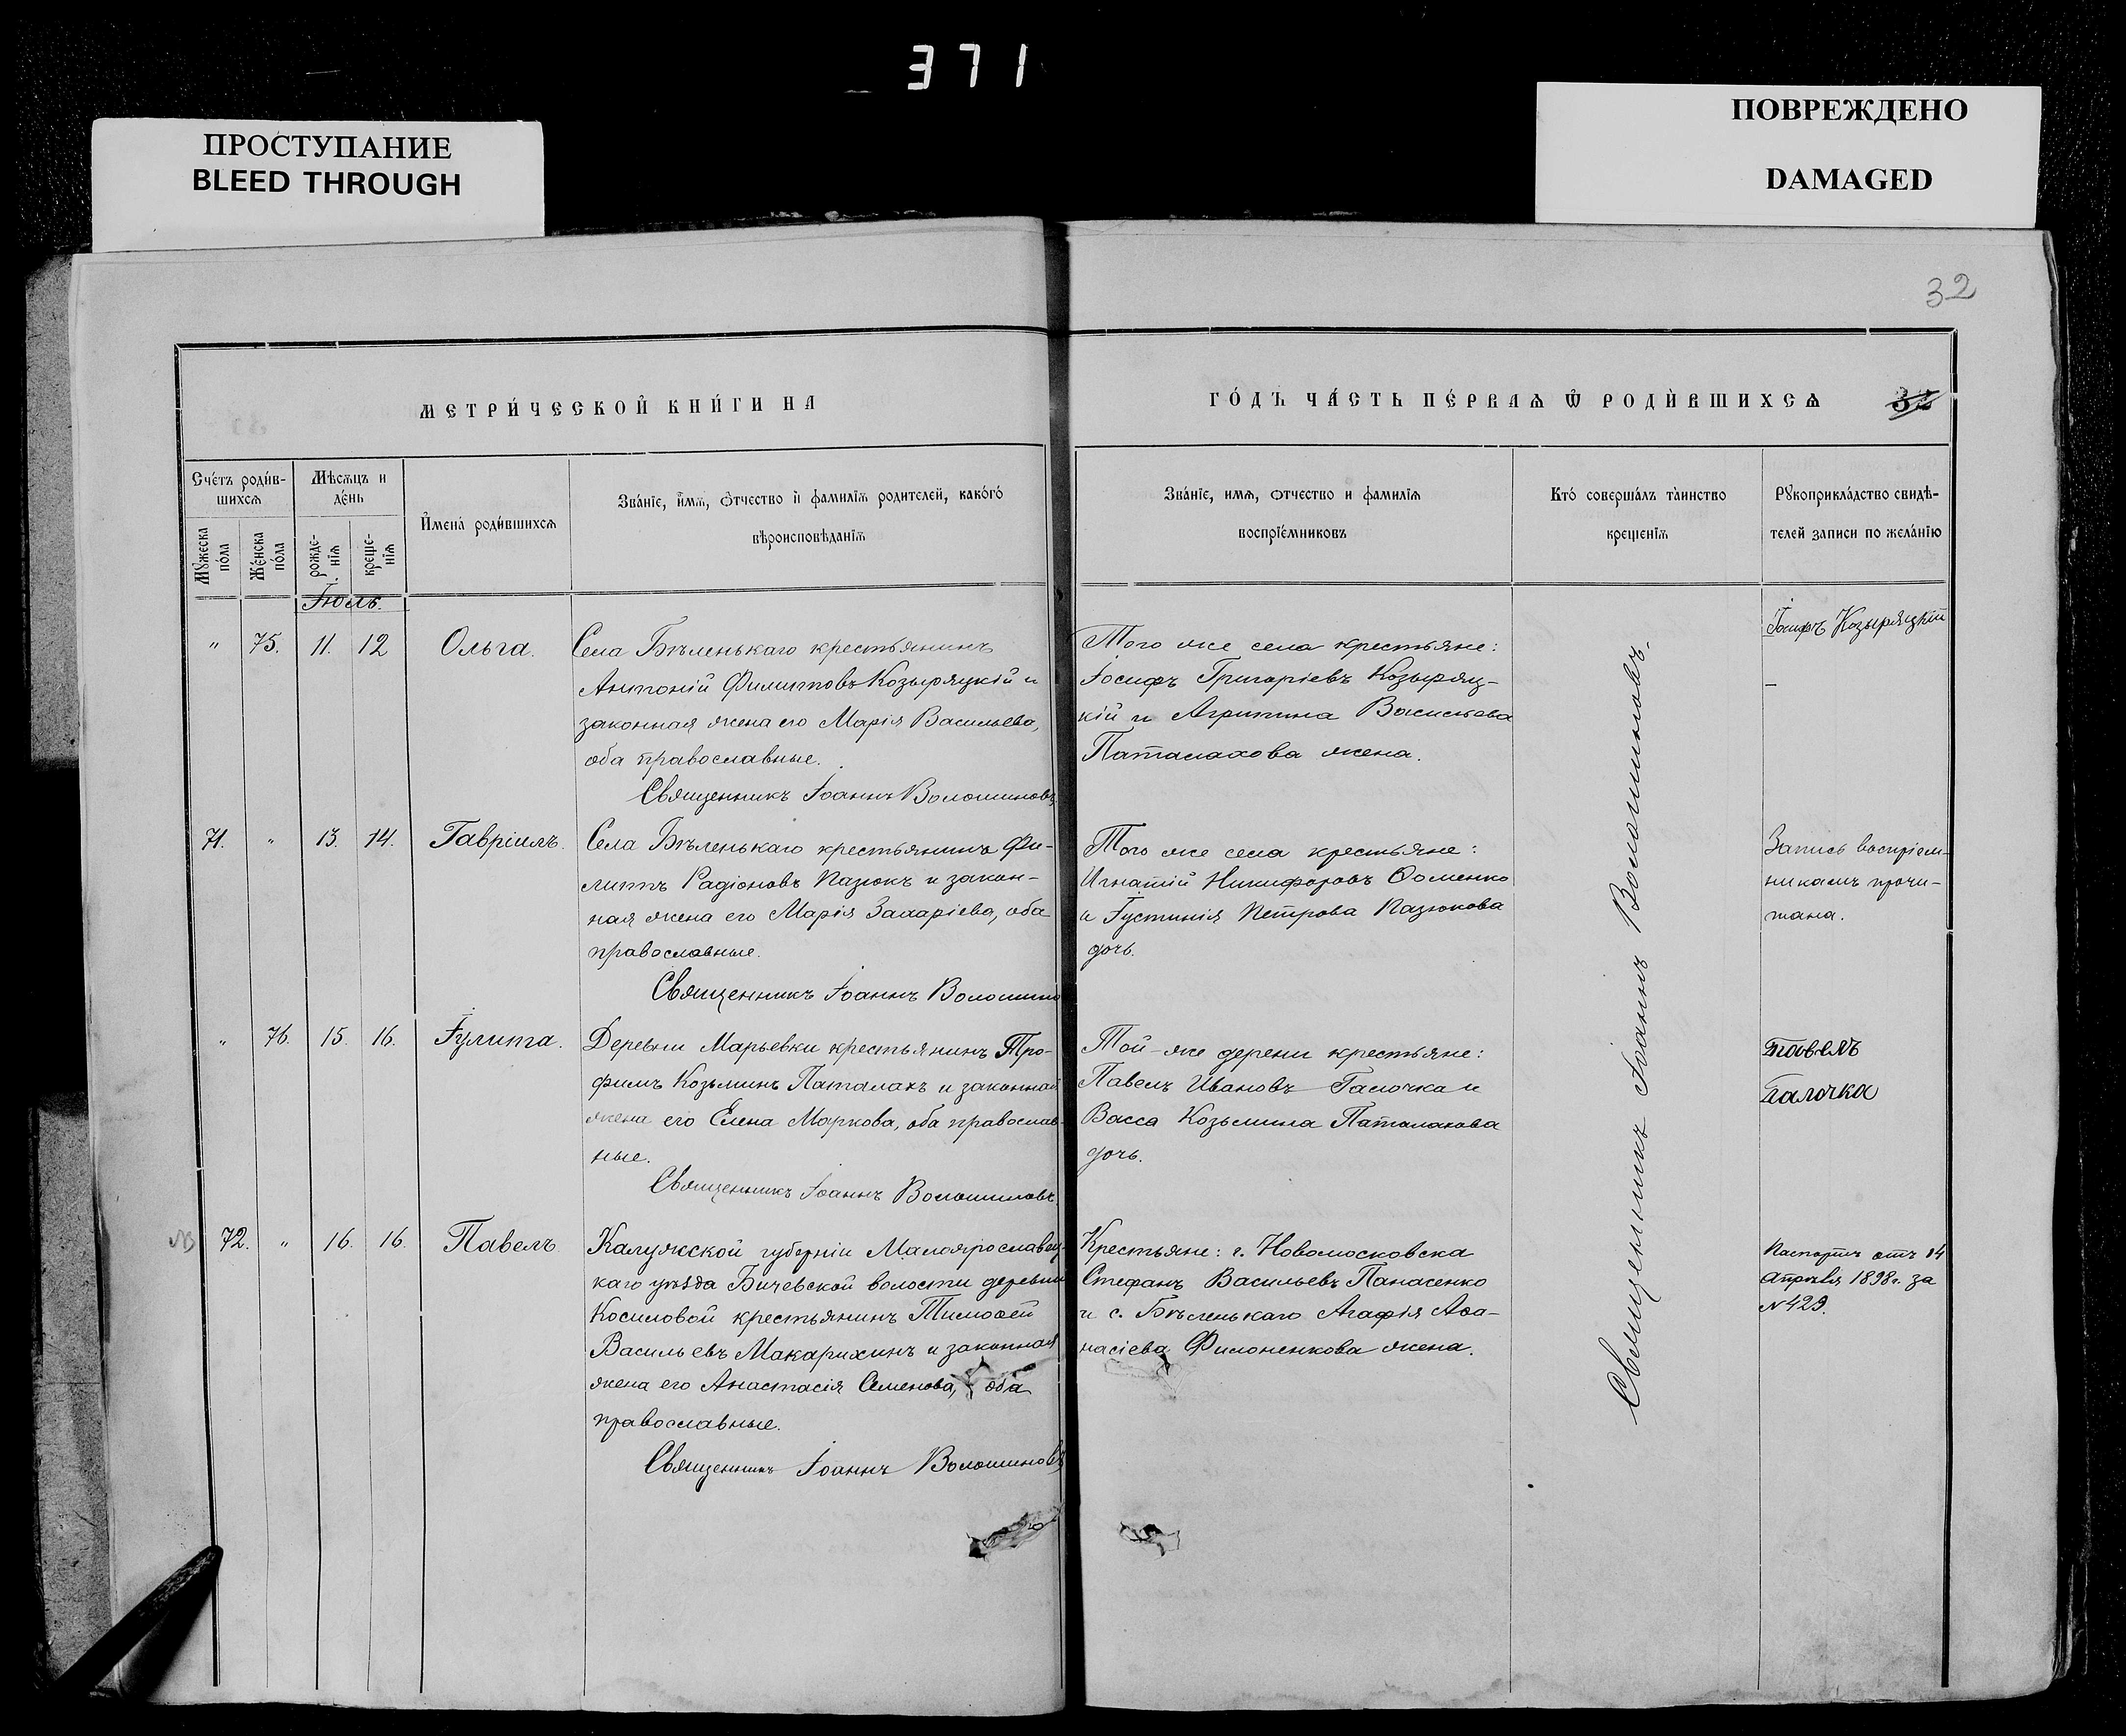 371
ПРОСТУПАНИЕ
BLEED THROUGH
ПОВРЕЖДЕНО
DAMAGED
32
МЕТРИ́ЧЕСКОЙ КНИ́ГИ НА
ГО́ДЪ ЧА́СТЬ ПЕ́РВАѦ Ѿ РОДИ́ВШИХСѦ
32
Сче́тъ роди́в-
шихсѧ
Мѣсѧцъ и
де́нь
И́мена́ роди́вшихсѧ
Зва́нїе, и́мѧ, ѻ́тчество и҆ фамилїѧ родителей, како́гѡ
вѣроисповѣданїѧ
Зва́нїе, имѧ, ѻтчество и фамилїѧ
воспрїе́мниковъ
Кто́ соверша́лъ та̀инство
креще́нїѧ
Рꙋкоприкла́дство свидѣ-
телей записи по жела́нїю
Мꙋжеска
по́ла
Же́нска
по́ла
рожде-
нїѧ
креще-
нїѧ
Іюль.
" 75. 11. 12 Ольга.
Села Бѣленькаго крестьянинъ
Антоній Филипповъ Козыряцкій и
законная жена его Марія Васильева,
оба православные.
Священникъ Іоаннъ Волошиновъ
Того же села крестьяне:
Іосифъ Григоріевъ Козыряц-
кій и Агрипина Васильева
Паталахова жена.
Іосифъ Козыряцкій
71. " 13. 14. Гавріилъ.
Села Бѣленькаго крестьянинъ Фи-
липпъ Радіоновъ Пазюкъ и закон-
ная жена его Марія Захаріева, оба
православные.
Священникъ Іоаннъ Волошино
Того же села крестьяне:
Игнатій Никифоровъ Ѳоменко
и Іустинія Петрова Пазюкова
дочь.
Запись воспріем-
никамъ прочи-
тана.
" 76. 15. 16. Іулита.
Деревни Марьевки крестьянинъ Тро-
фимъ Козьминъ Паталахъ и законная
жена его Елена Маркова, оба православ-
ные.
Священникъ Іоаннъ Волошиновъ.
Той-же дерени крестьяне:
Павелъ Ивановъ Галочка и
Васса Козьмина Паталахова
дочь.
Павелъ
Галочка
NB 72. " 16. 16. Павелъ.
Калужской губерніи Малоярославец-
каго уѣзда Бичевской волости деревни
Косиловой крестьянинъ Тимоѳей
Васильевъ Макарихинъ и законная
жена его Анастасія Семенова, оба
православные.
Священникъ Іоаннъ Волошиновъ
Крестьяне: г. Новомосковска
Стефанъ Васильевъ Панасенко
и с. Бѣленькаго Агафія Аѳа-
насіева Филоненкова жена.
Паспортъ отъ 14
Апрѣля 1898 г. за
№ 429.
Священникъ Іоаннъ Волошиновъ.